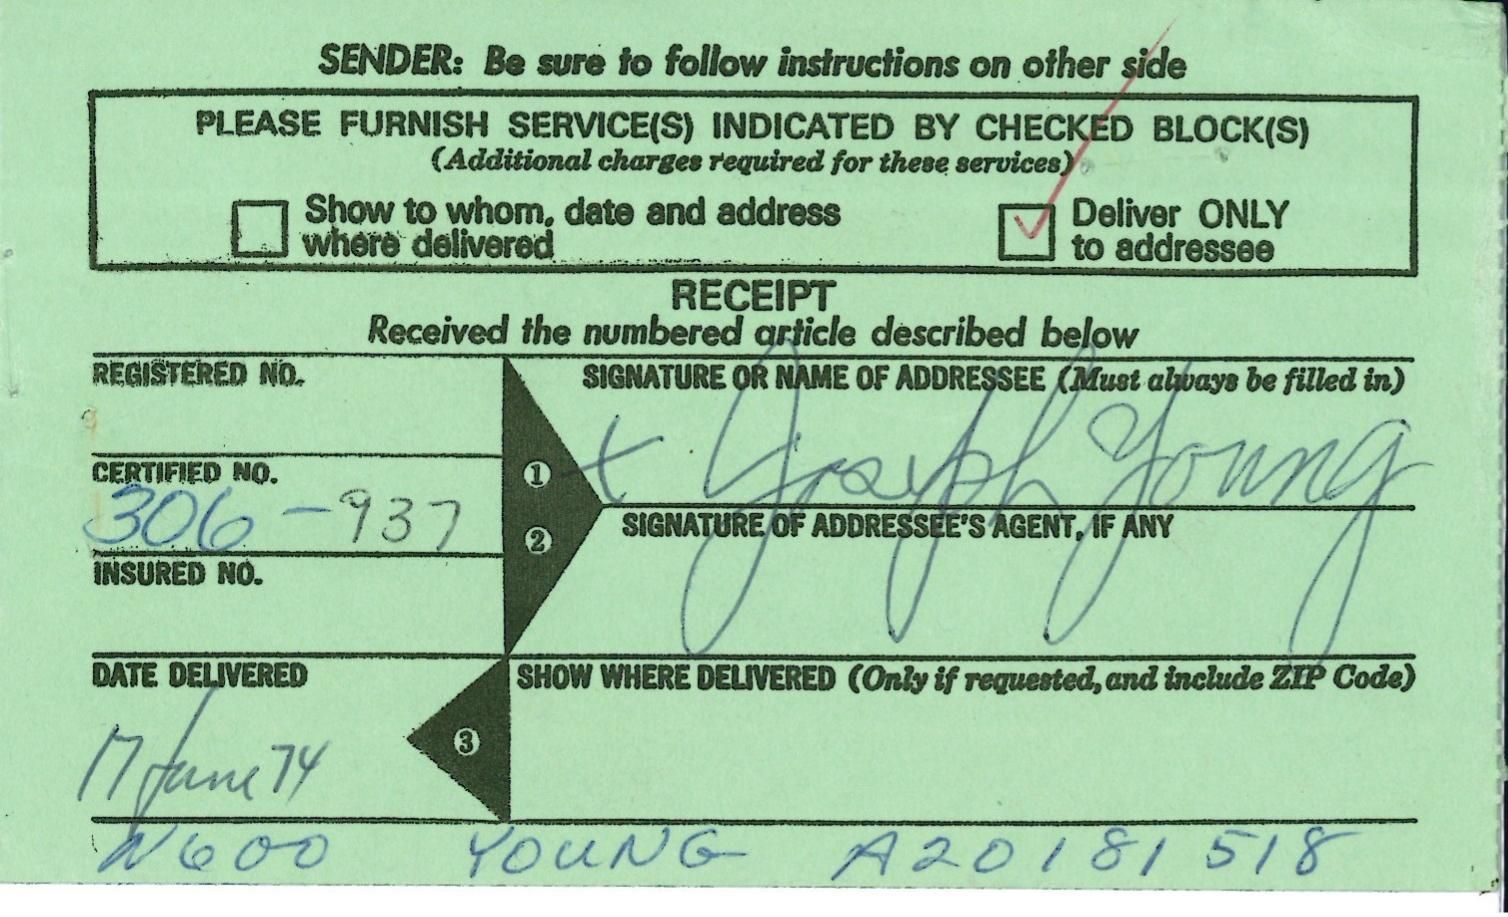 SENDER: Be sure to follow instructions on other side
PLEASE FURNISH SERVICE(S) INDICATED BY CHECKED BLOCK(S)
(Additional charges required for these services)
Show to whom, date and address
where delivered
Deliver ONLY
to addressee
RECEIPT
Received the numbered article described below
REGISTERED NO.
CERTIFIED NO.
306-937
INSURED NO.
1
2
SIGNATURE OR NAME OF ADDRESSEE (Must always be filled in)
x Joseph Young
SIGNATURE OF ADDRESSEE'S AGENT, IF ANY
DATE DELIVERED
17 June 74
3
SHOW WHERE DELIVERED (Only if requested, and include ZIP Code)
N600 YOUNG A20181518